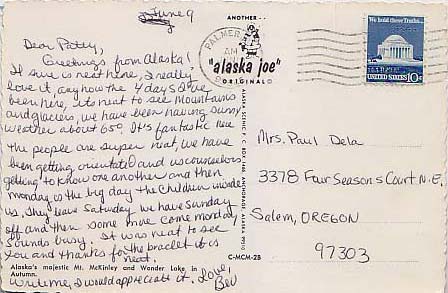 June 9
Dear Patty,
Greetings from Alaska!
It sure is neat here, I really
love it, anyhow the 4 days I've
been here, its neat to see Mountains
and glaciers, we have been having sunny
weather about 65° It's fantastic here
the people are super neat, we have
been getting orientated and us counselors
getting to know one another and then
monday is the big day the Children invade
us, they leave Saturday we have sunday
off and then some more come monday
Sounds busy. It was neat to see
you and thanks for the braclet it is
neat.
Alaska's majestic Mt. McKinley and Wonder Lake in
Autumn.
write me, I would appreciate it. Love,
Bev
ANOTHER
PALMER
AM
"alaska joe"
ORIGINAL
C-MCM-2B
We hold these Truths...
UNITED STATES 10c
Mrs. Paul Dela
3378 Fair Seasons Court N.E.
Salem, OREGON
97303